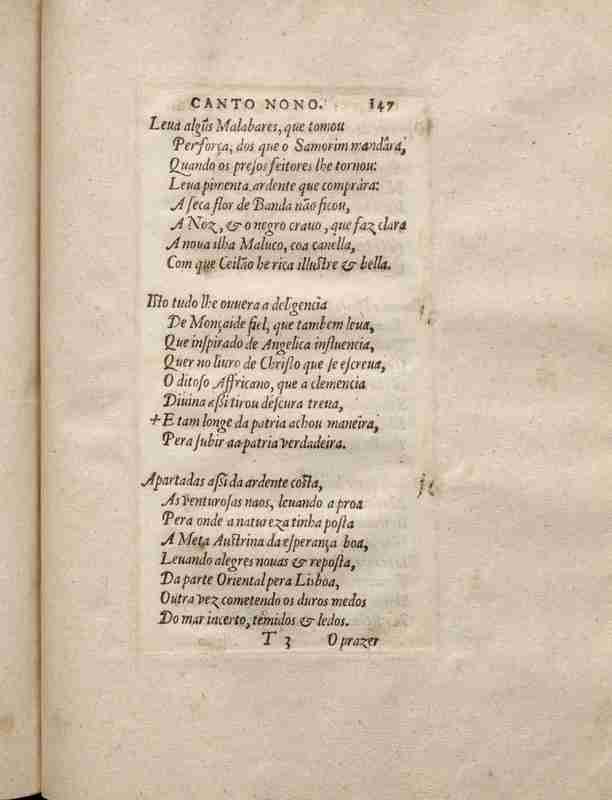 CANTO NONO. 147
Leua algũs Malabares, que tomou
Per força, dos que o Samorim mandàra,
Quando os presos feitores lhe tornou:
Leua pimenta ardente que comprâra:
A seca flor de Banda não ficou,
A Noz, & o negro crauo, que faz clara
A noua ilha Maluco, coa canella,
Com que Ceilão he rica illustre & bella.
Isto tudo lhe ouuera a deligencia
De Monçaide fiel, que tambem leua,
Que inspirado de Angelica influencia,
Quer no liuro de Christo que se escreua,
O ditoso Affricano, que a clemencia
Diuina assi tirou descura treua,
+E tam longe da patria achou maneira,
Pera subir aa patria verdadeira.
Apartadas assi da ardente costa,
As venturosas naos, leuando a proa
Pera onde a natureza tinha posta
A Meta Austrina da esperança boa,
Leuando alegres nouas & reposta,
Da parte Oriental pera Lisboa,
Outra vez cometendo os duros medos
Do mar incerto, temidos & ledos.
T 3 O prazer